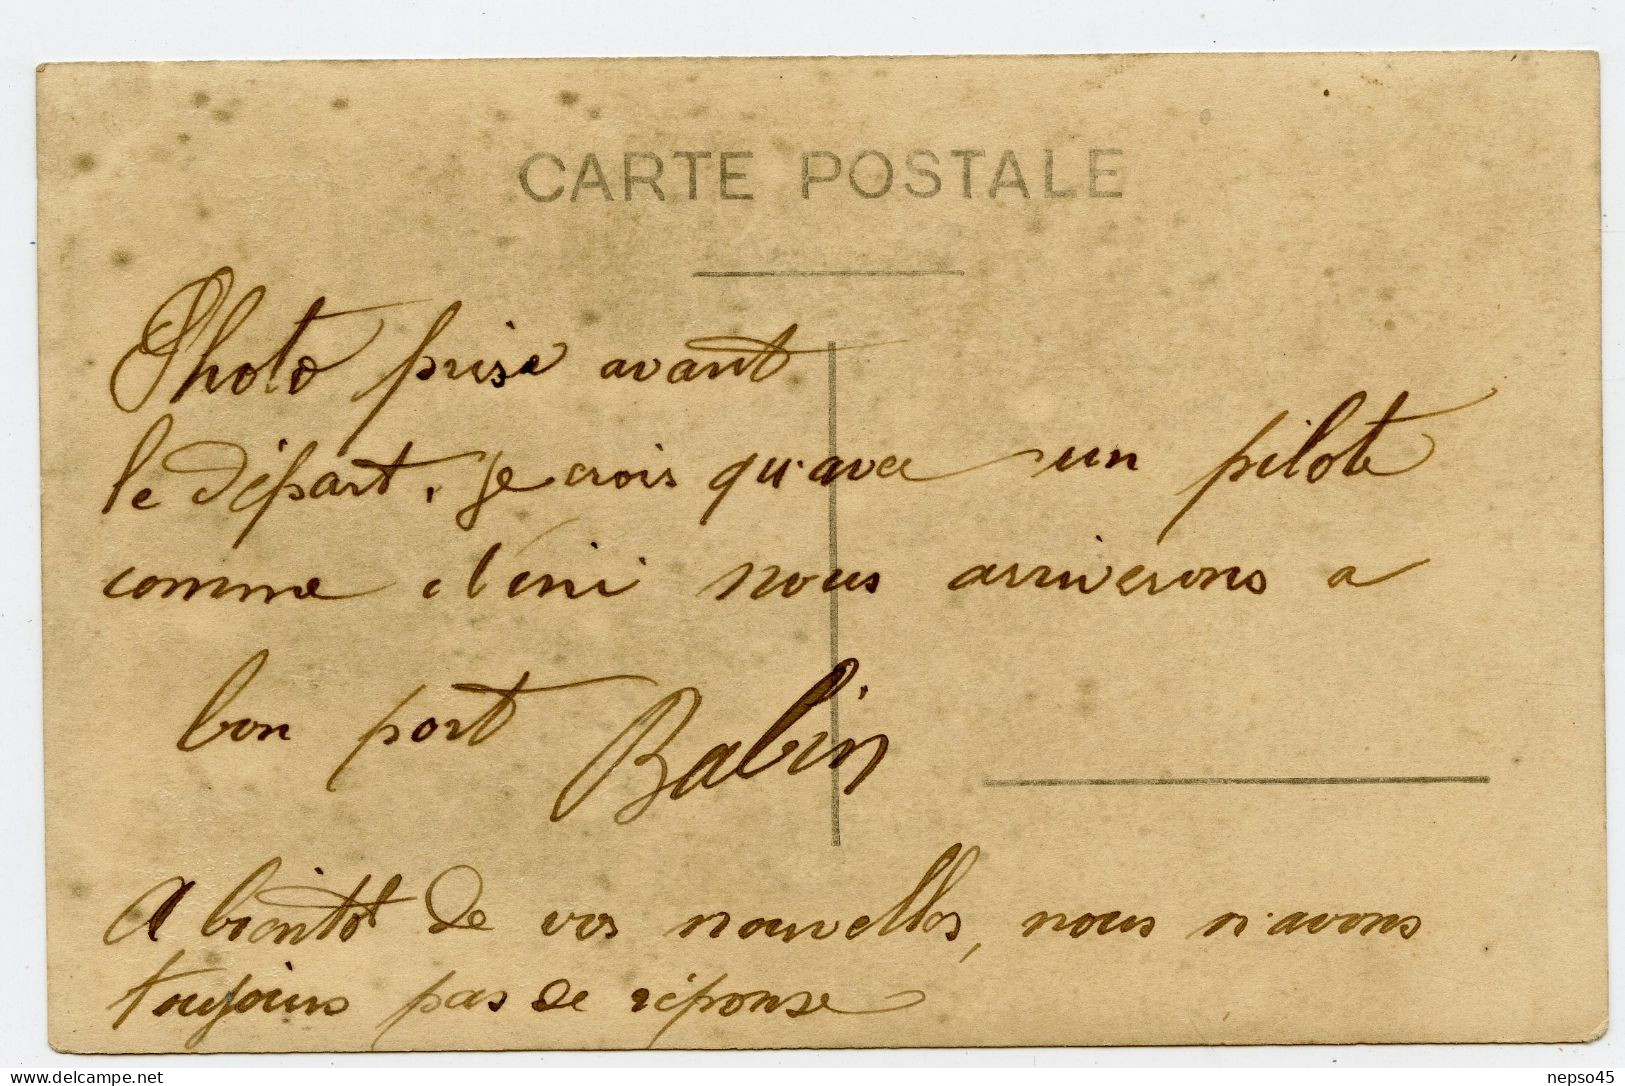 CARTE POSTALE
Photo prise avant
le départ, je crois qu'avec un pilote
comme nous arriverons a
bon port Babin
A bientôt de vos nouvelles, nous n'avons
toujours pas de réponse
delcampe.net
nepso45